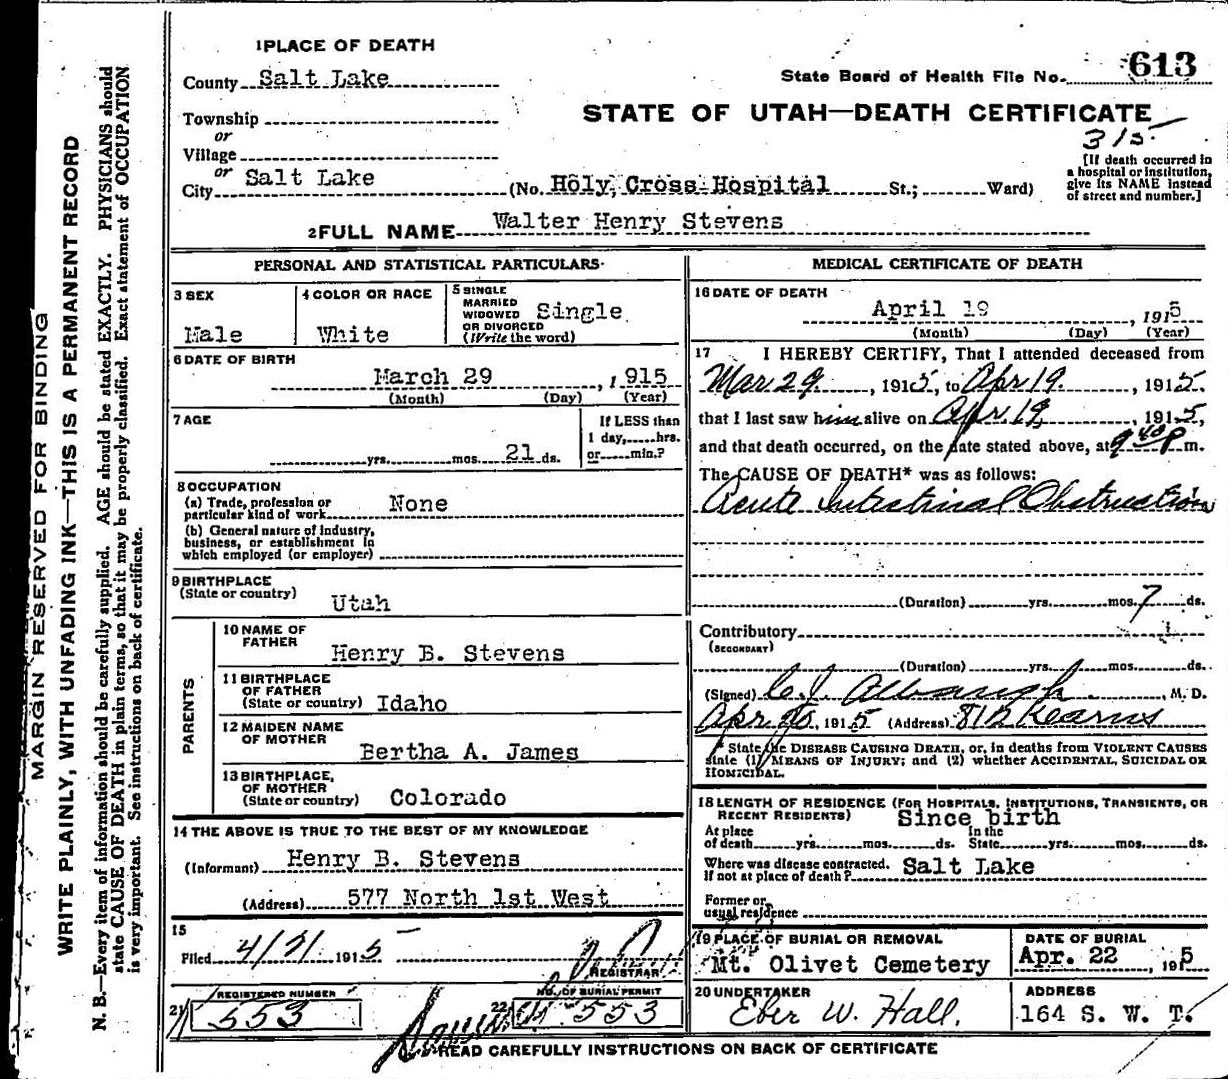 MARGIN RESERVED FOR BINDING
WRITE PLAINLY, WITH UNFADING INK—THIS IS A PERMANENT RECORD
N. B.—Every item of information should be carefully supplied. AGE should be stated EXACTLY. PHYSICIANS should
state CAUSE OF DEATH in plain terms, so that it may be properly classified. Exact statement of OCCUPATION
is very important. See instructions on back of certificate.
1 PLACE OF DEATH
County Salt Lake
State Board of Health File No. 613
STATE OF UTAH—DEATH CERTIFICATE
315
Township
or
Village
or
City Salt Lake (No. Holy Cross Hospital St.; Ward)
[If death occurred in
a hospital or institution,
give its NAME instead
of street and number.]
2 FULL NAME Walter Henry Stevens
PERSONAL AND STATISTICAL PARTICULARS
3 SEX
Male
4 COLOR OR RACE
White
5 SINGLE
MARRIED
WIDOWED
OR DIVORCED
(Write the word)
Single
6 DATE OF BIRTH
March 29, 1915
(Month) (Day) (Year)
7 AGE
yrs. mos. 21 ds.
If LESS than
1 day, hrs.
or min.?
8 OCCUPATION
(a) Trade, profession or
particular kind of work None
(b) General nature of industry,
business, or establishment in
which employed (or employer)
9 BIRTHPLACE
(State or country)
Utah
PARENTS
10 NAME OF
FATHER
Henry B. Stevens
11 BIRTHPLACE
OF FATHER
(State or country) Idaho
12 MAIDEN NAME
OF MOTHER
Bertha A. James
13 BIRTHPLACE,
OF MOTHER
(State or country) Colorado
14 THE ABOVE IS TRUE TO THE BEST OF MY KNOWLEDGE
(Informant) Henry B. Stevens
(Address) 577 North 1st West
15
Filed 4/21 1915
REGISTRAR
21 REGISTERED NUMBER
553
22 NO. OF BURIAL PERMIT
553
MEDICAL CERTIFICATE OF DEATH
16 DATE OF DEATH
April 19, 1915
(Month) (Day) (Year)
17 I HEREBY CERTIFY, That I attended deceased from
Mar. 29, 1915, to Apr. 19, 1915.
that I last saw him alive on Apr. 19, 1915,
and that death occurred, on the date stated above, at 9 40 P m.
The CAUSE OF DEATH* was as follows:
Acute Intestinal Obstruction
(Duration) yrs. mos. 7 ds.
Contributory
(SECONDARY)
(Duration) yrs. mos. ds.
(Signed) C. J. Albaugh, M. D.
Apr. 20, 1915 (Address) 812 Kearns
* State the DISEASE CAUSING DEATH, or, in deaths from VIOLENT CAUSES
state (1) MEANS OF INJURY; and (2) whether ACCIDENTAL, SUICIDAL OR
HOMICIDAL.
18 LENGTH OF RESIDENCE (FOR HOSPITALS, INSTITUTIONS, TRANSIENTS, OR
RECENT RESIDENTS) Since birth
At place
of death yrs. mos. ds.
In the
State yrs. mos. ds.
Where was disease contracted.
If not at place of death? Salt Lake
Former or
usual residence
19 PLACE OF BURIAL OR REMOVAL
Mt. Olivet Cemetery
DATE OF BURIAL
Apr. 22, 1915
20 UNDERTAKER
Eber W. Hall.
ADDRESS
164 S. W. T.
READ CAREFULLY INSTRUCTIONS ON BACK OF CERTIFICATE